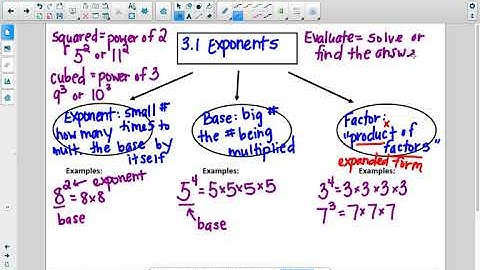 Squared = power of 2
5² or 11²
cubed = power of 3
9³ or 10³
3.1 Exponents
Evaluate = solve or
find the answer
Exponent: small #
how many times to
mult. the base by
itself
Base: big #
the # being
multiplied
Factor: x
"product of
factors"
expanded form
Examples:
8² ← exponent
= 8×8
base
Examples:
5⁴ = 5×5×5×5
base
Examples:
3⁴ = 3×3×3×3
7³ = 7×7×7